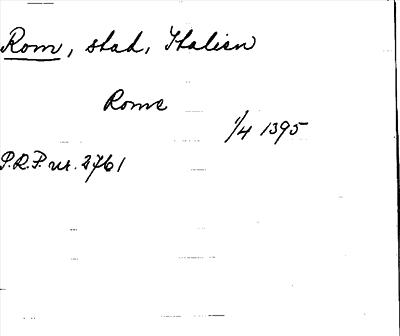 Rom, stad, Italien
Rome
1/4 1395
P.R.P. nr. 2761